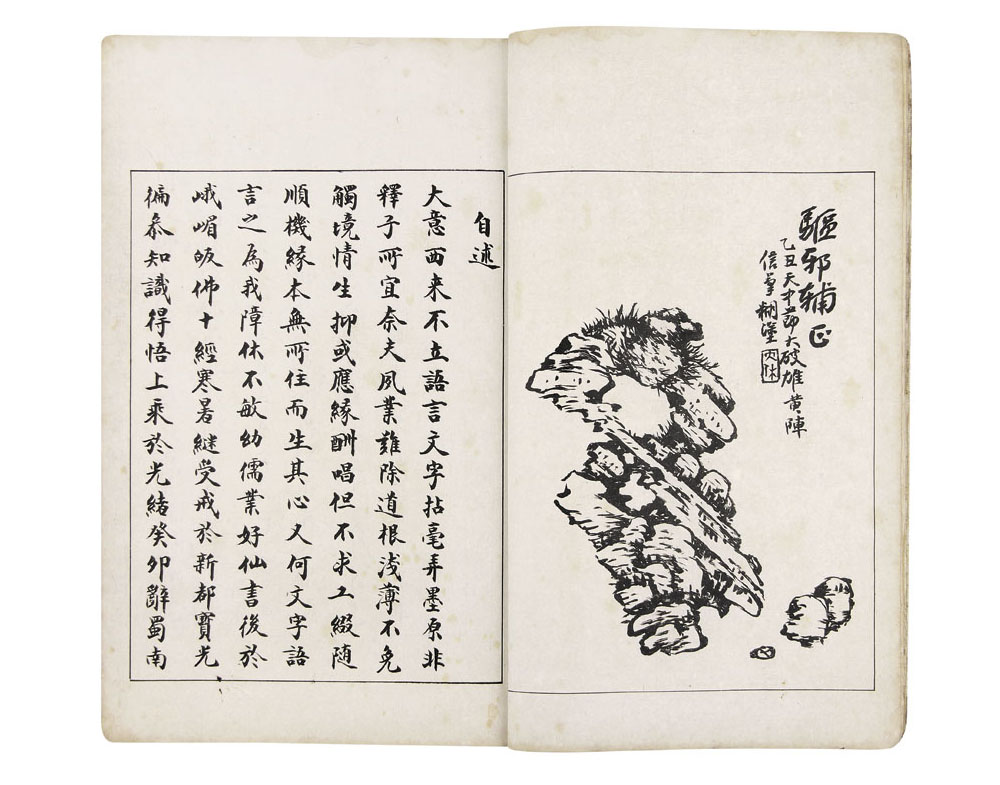 驅邪辅正
乙丑天中節大破雄黄陣
信糊塗
自述
大意西来不立語言文字拈毫弄墨原非
釋子所宜奈夫夙業難除道根浅薄不免
觸境情生抑或應縁酬唱但不求工綴随
順機縁本無所住而生其心又何文字語
言之為我障休不敏幼儒業好仙書後於
峨嵋皈佛十經寒暑継受戒於新都寳光
徧叅知識得悟上乘於光緒癸卯辭蜀南